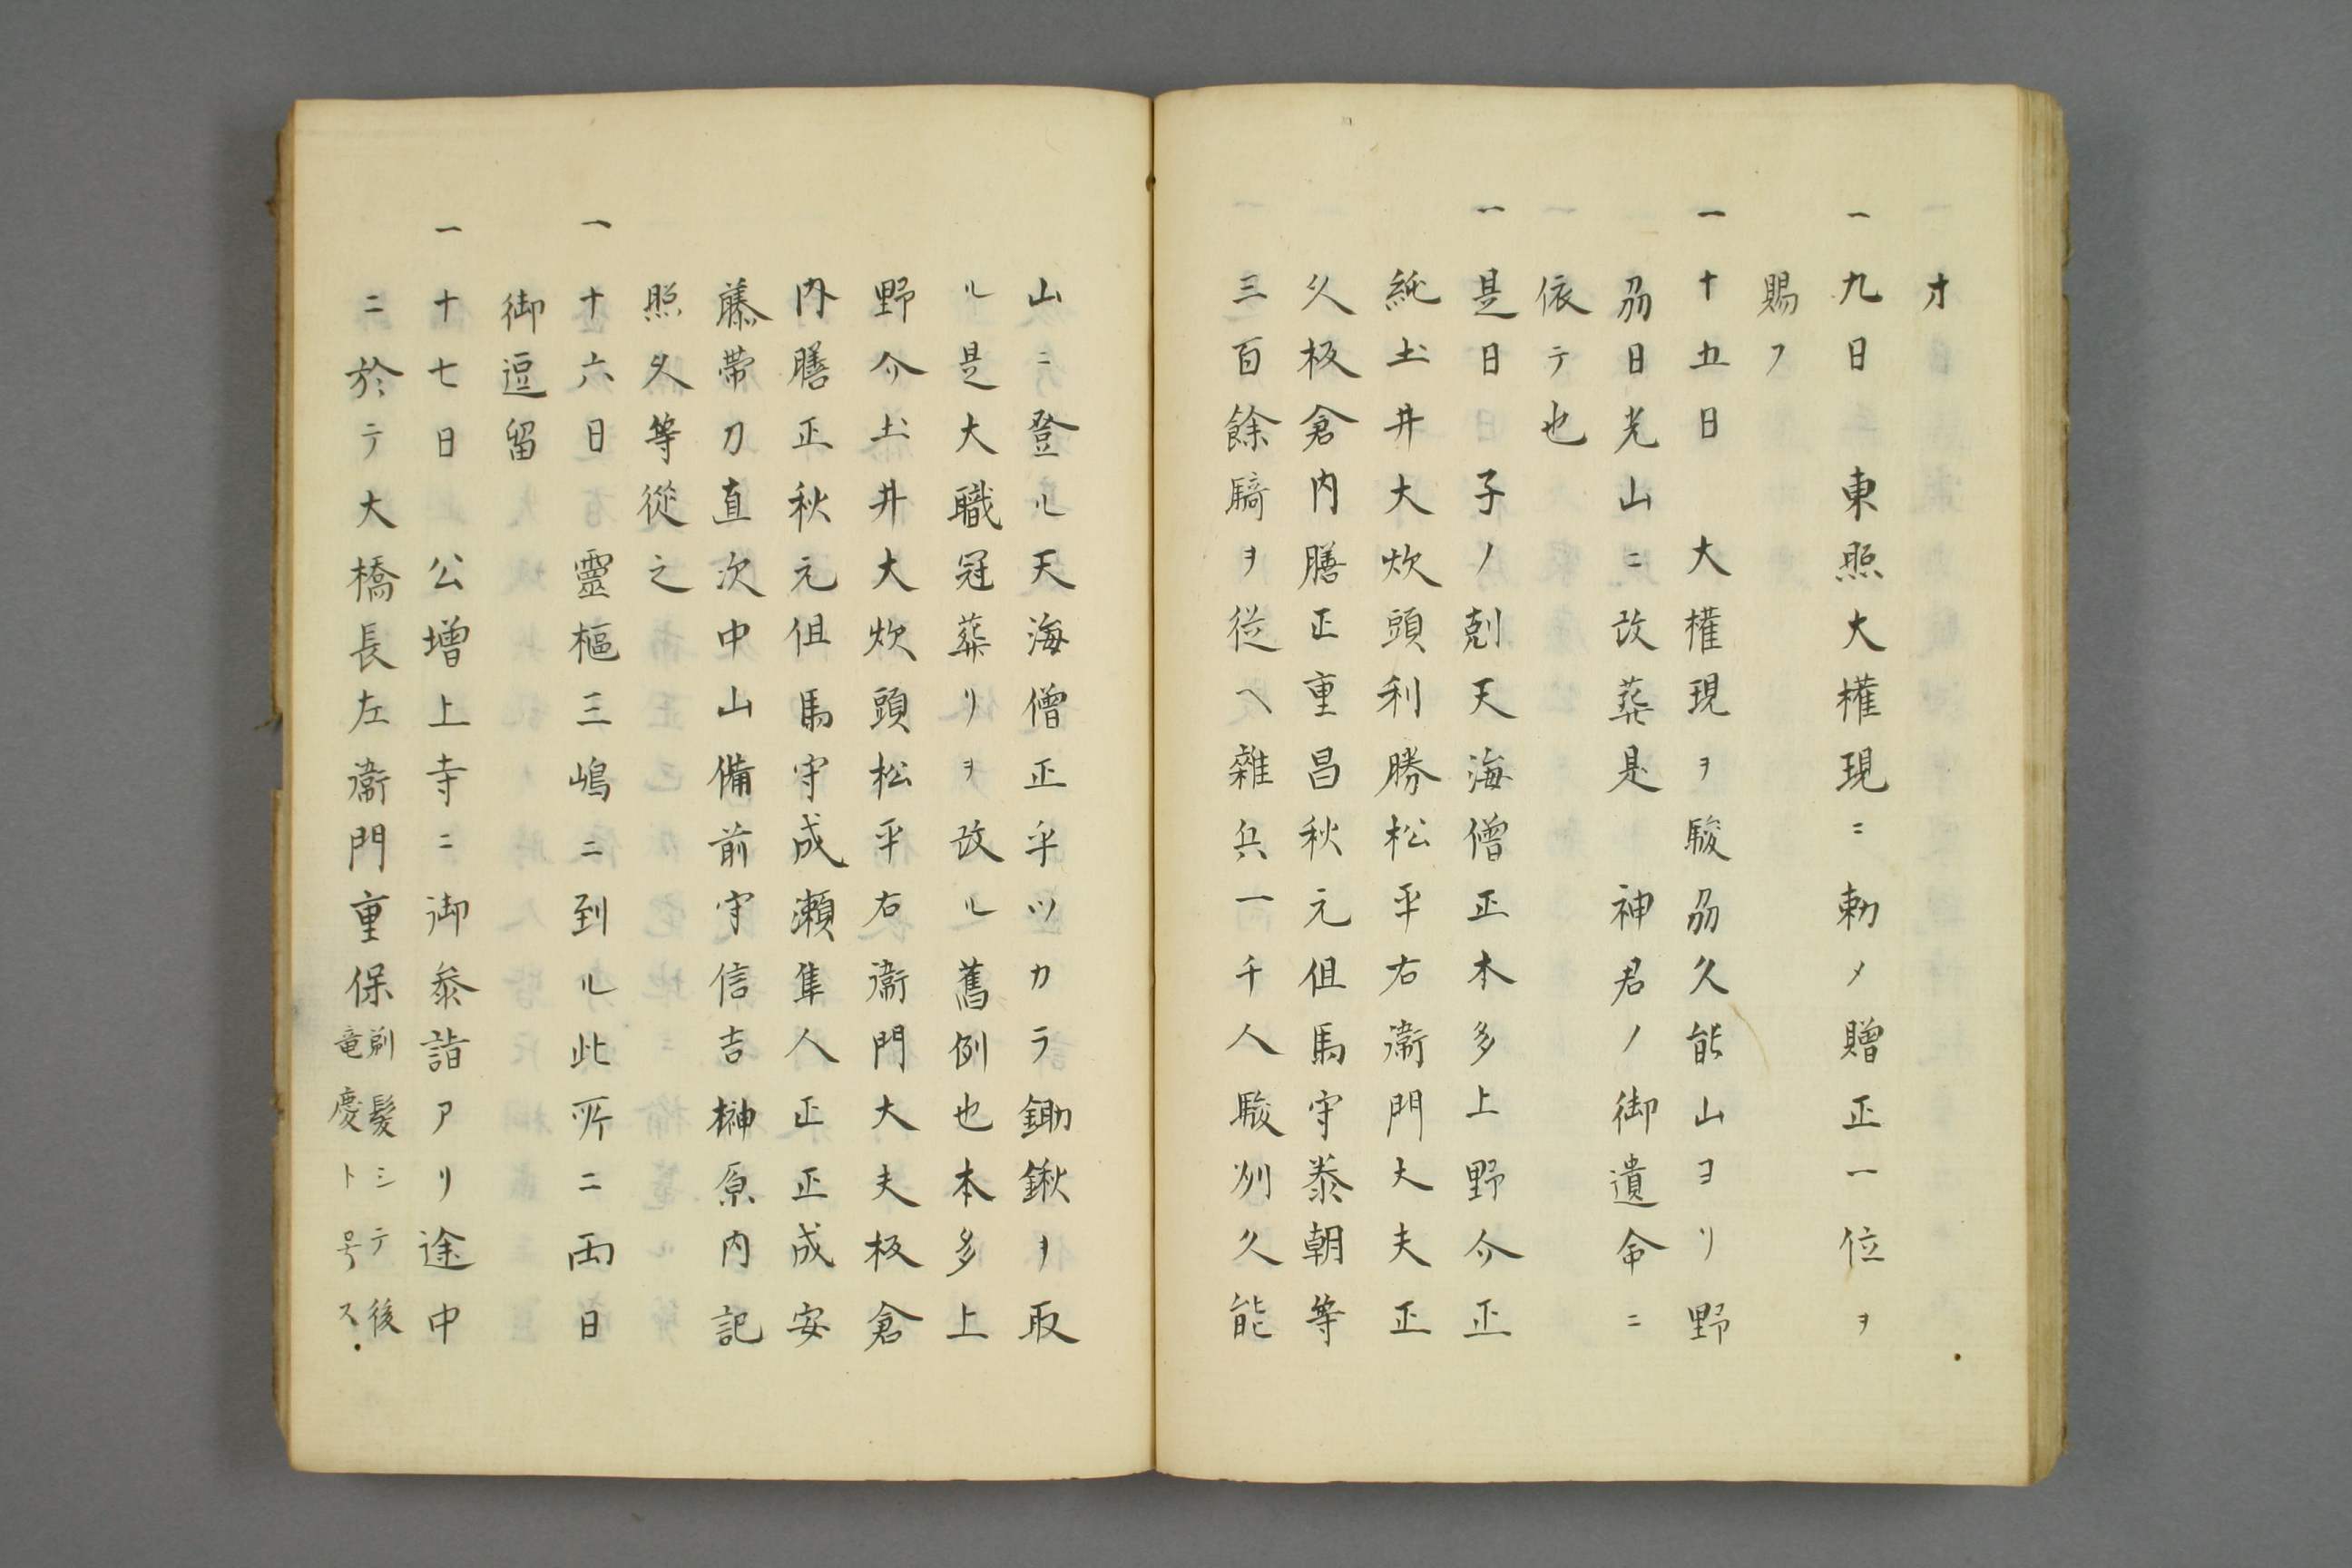 才
一九日　東照大權現ニ勅〆贈正一位ヲ
賜フ
一十五日　大權現ヲ駿刕久能山ヨリ野
刕日光山ニ改葬是　神君ノ御遺命ニ
依テ也
一是日　子ノ剋天海僧正本多上野介正
純土井大炊頭利勝松平右衞門大夫正
久板倉内膳正重昌秋元但馬守泰朝等
三百餘騎ヲ從ヘ雜兵一千人駿州久能
山ニ登ル天海僧正手ツカラ鋤鍬ヲ取
ル是大職冠葬リヲ改ル舊例也本多上
野介土井大炊頭松平右衞門大夫板倉
内膳正秋元但馬守成瀬隼人正正成安
藤帶刀直次中山備前守信吉榊原内記
照久等從之
一十六日　靈柩三嶋ニ到ル此所ニ兩日
御逗留
一十七日　公增上寺ニ御參詣アリ途中
ニ於テ大橋長左衞門重保剃髮シテ後
竜慶ト号ス